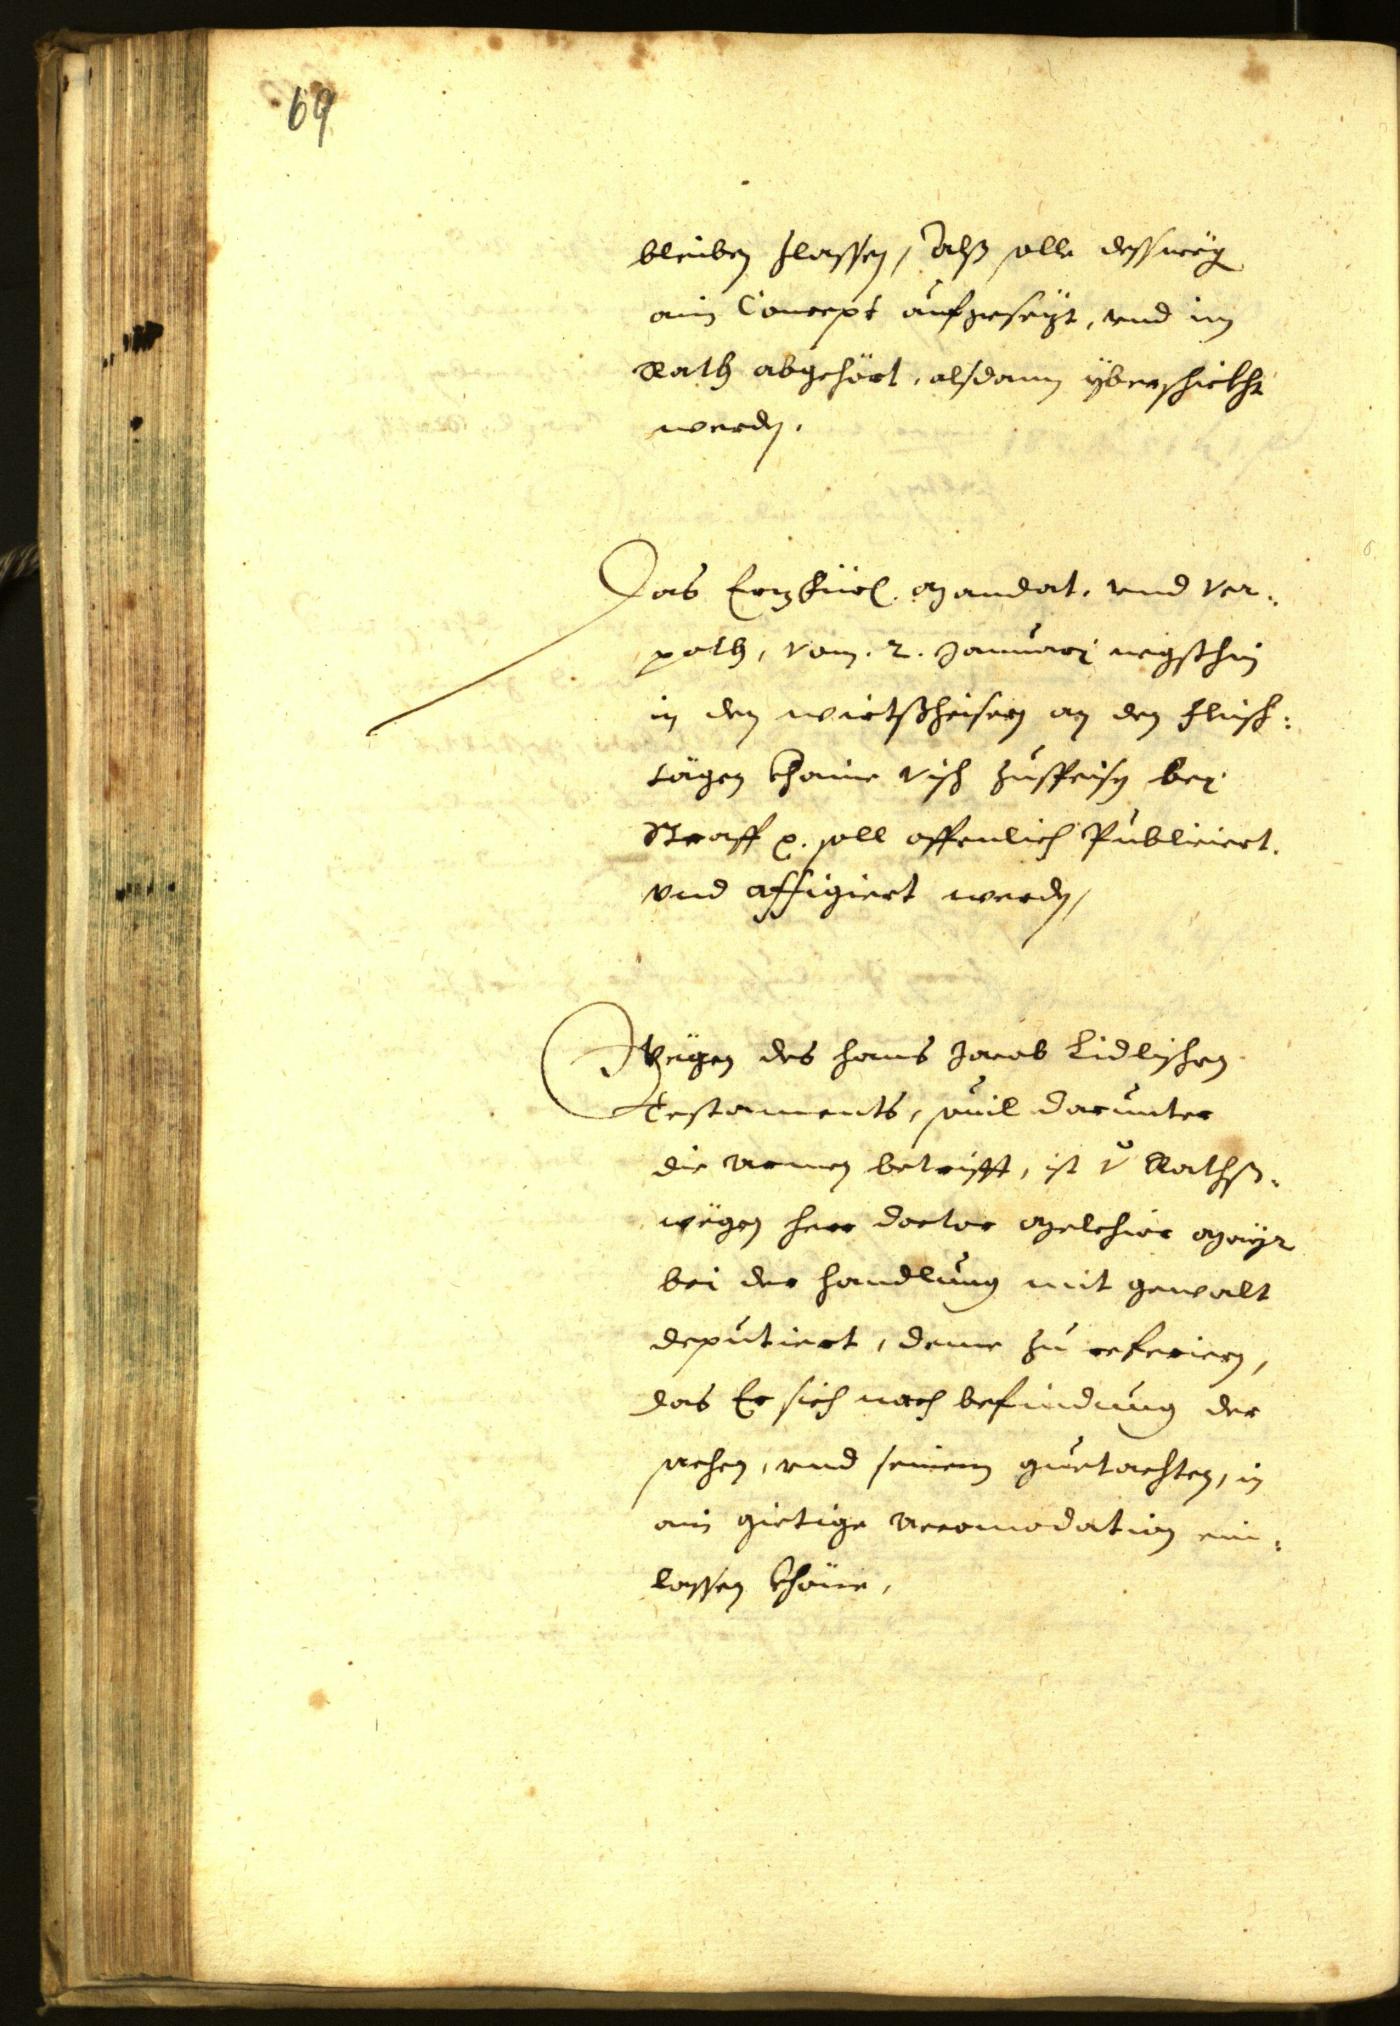 69
bleiben zlassen, Alß solle dessweg
ain Concept aufgesezt, vnd im
Rath abgehört, alsdann yberschickht
werdn.
Das Erzfürl. Mandat, vnd Ver-
poth, vom .2. January negsthin
in den wirtßheisern an den Flaisch-
tägen khaine Visch zuspeisn bey
Straff p. soll offenlich Publiciert.
vnd affigiert werdn,
Wegen des Hans Jacob Lidlischen
Testaments, souil darunter
die Armen betrifft, ist v Rathß-
wegen Herr Doctor Melchior Mayr
bei der Handlung mit gewalt
deputiert, deme zu referiern,
das Er sich nach befindung der
sachen, vnd seinem guetachten, in
ain güetige Accomodation ein-
lassen khöne,